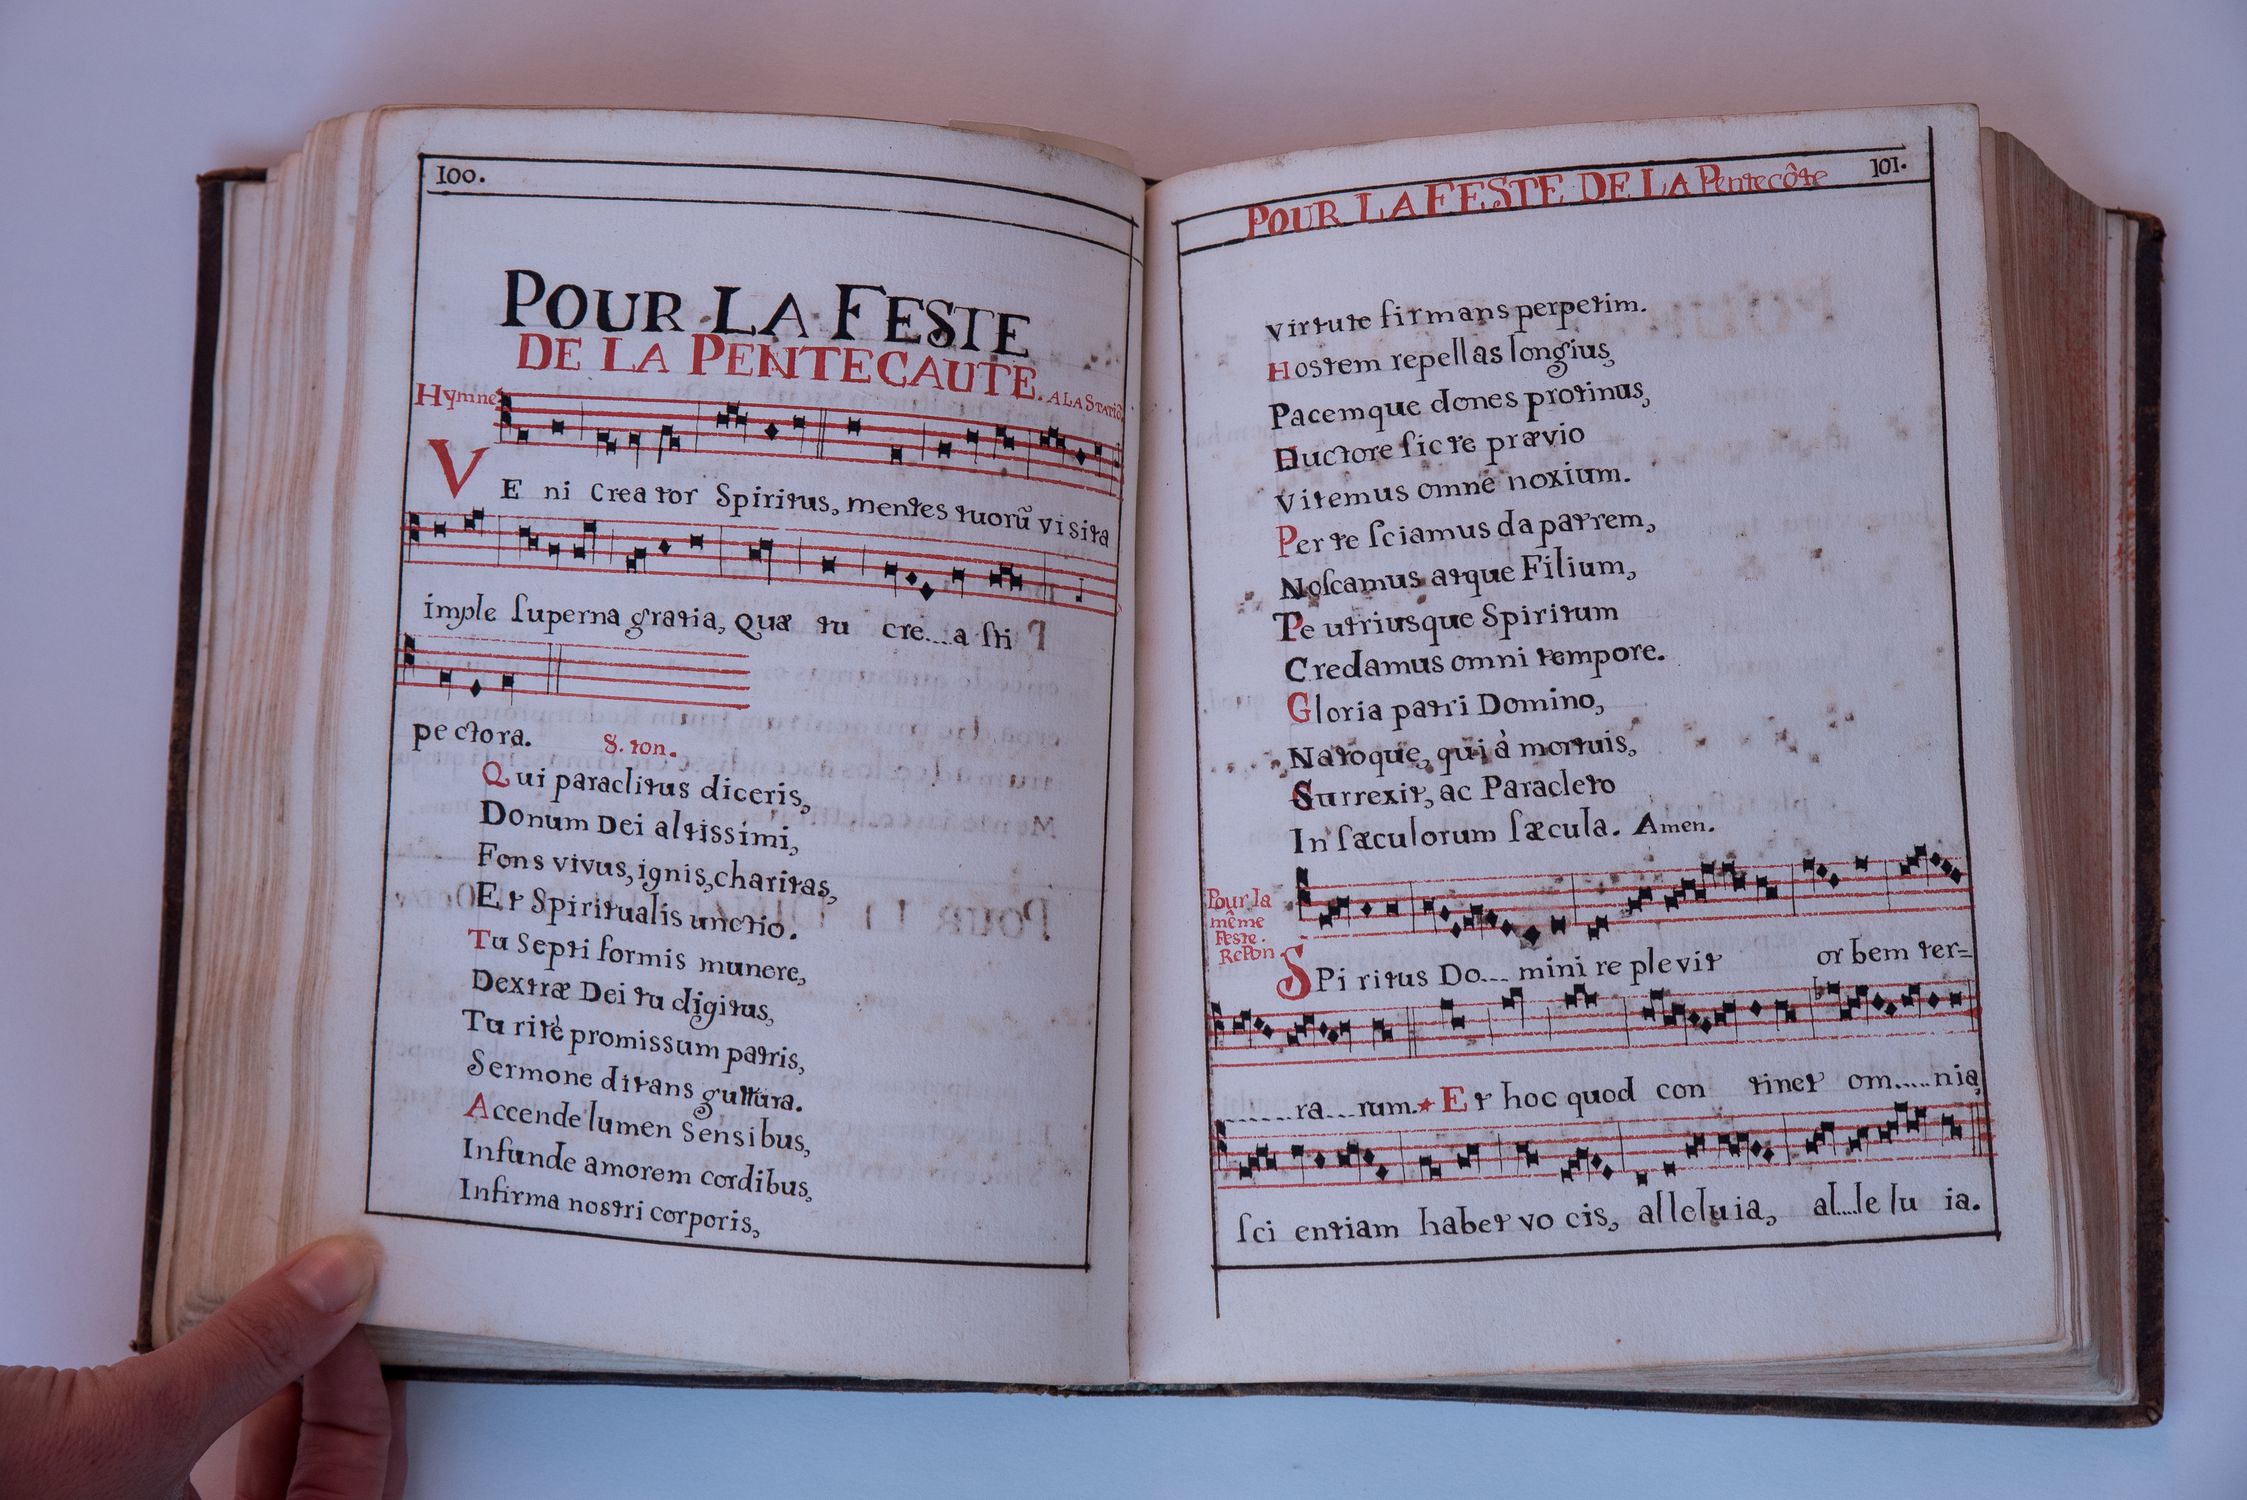 100.
POUR LA FESTE
DE LA PENTECAUTE. A LA STATIO
Hymne
VE ni Crea tor Spiritus, mentes tuorũ visita
imple ſuperna gratia, Quæ tu cre....a ſti
pectora. 8. ton.
Qui paraclitus diceris,
Donum Dei altissimi,
Fons vivus, ignis, charitas,
Et Spiritualis unctio.
Tu Septi formis munere,
Dextræ Dei tu digitus,
Tu ritè promissum patris,
Sermone ditans guttura.
Accende lumen Sensibus,
Infunde amorem cordibus,
Infirma nostri corporis,
POUR LA FESTE DE LA Pentecôte 101.
virtute firmans perpetim.
Hostem repellas longius,
Pacemque dones protinus,
Ductore ſic te prævio
Vitemus omne noxium.
Per te ſciamus da patrem,
Noſcamus atque Filium,
Te utriusque Spiritum
Credamus omni tempore.
Gloria patri Domino,
Natoque, qui à mortuis,
Surrexit, ac Paracleto
In ſæculorum ſæcula. Amen.
Pour la
même
Feste.
Repon.
SPi ritus Do... mini re plevit or bem ter=
......ra...rum.* Et hoc quod con tinet om.....nia,
ſci entiam habet vo cis, alleluia, al....le lu ia.